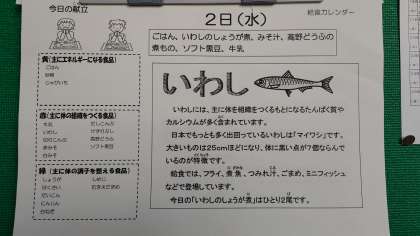 今日の献立
給食カレンダー
2日(水)
ごはん、いわしのしょうが煮、みそ汁、高野どうふの
煮もの、ソフト黒豆、牛乳
黄(主にエネルギーになる食品)
ごはん
砂糖
じゃがいも
赤(主に体の組織をつくる食品)
牛乳
いわし
赤みそ
白みそ
だしこんぶ
ソフト黒豆
緑(主に体の調子を整える食品)
しょうが
はくさい
だいこん
にんじん
白ねぎ
しめじ
いわし
いわしには、主に体を組織をつくるもとになるたんぱく質や
カルシウムが多く含まれています。
日本でもっとも多く出回っているいわしは「マイワシ」です。
大きいものは25cmほどになり、体に黒い点が7個ならんで
いるのが特徴です。
給食では、フライ、煮魚、つみれ汁、ごまめ、ミニフィッシュ
などで登場しています。
今日の「いわしのしょうが煮」はひとり2尾です。